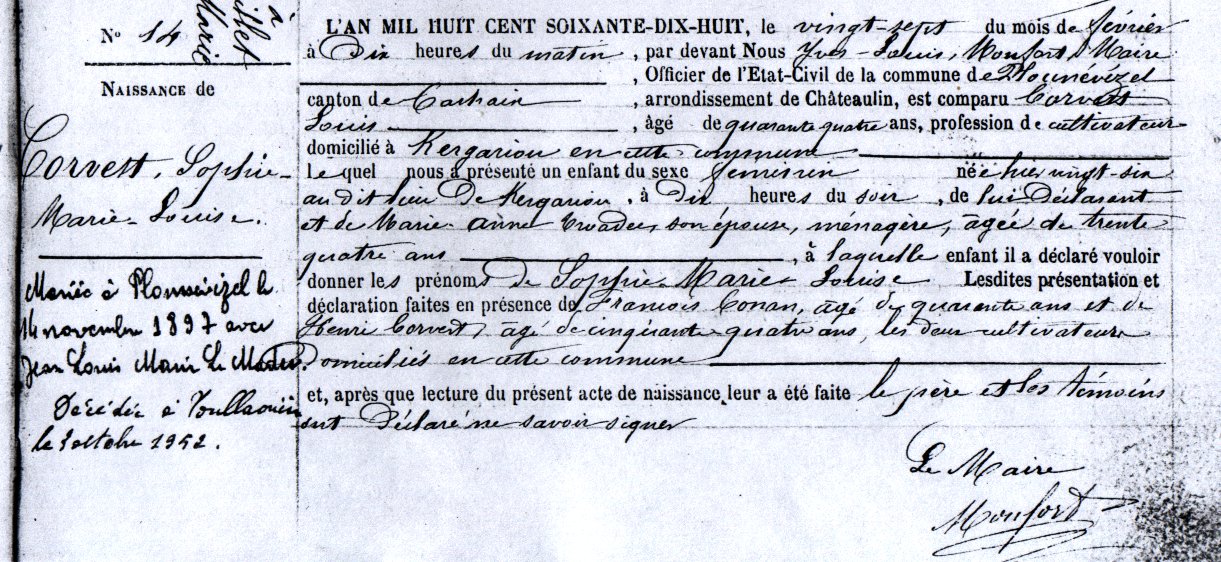 à
illet
Marie
N° 14
NAISSANCE de
Corvest, Sophie-
Marie-Louise.
Mariée à Plounévézel le
14 novembre 1897 avec
Jean Louis Marie Le
Décédée à
le 3 octobre 1952.
L'AN MIL HUIT CENT SOIXANTE-DIX-HUIT, le vingt-sept du mois de février
à Dix heures du matin, par devant Nous Yves-Louis, Monfort, Maire
, Officier de l'Etat-Civil de la commune de Plounévézel
canton de Carhaix, arrondissement de Châteaulin, est comparu Corvest
Louis, âgé de quarante quatre ans, profession de cultivateur
domicilié à Kergariou en cette commune
le quel nous a présenté un enfant du sexe féminin née hier vingt-six
au dit lieu de Kergariou, à dix heures du soir, de lui Déclarant
et de Marie-Anne son épouse, ménagère, agée de trente
quatre ans, à laquelle enfant il a déclaré vouloir
donner les prénoms de Sophie-Marie-Louise Lesdites présentation et
déclaration faites en présence de François Conan, agé de quarante ans et de
Henri Corvest, agé de cinquante-quatre ans, les deux cultivateurs
Domiciliés en cette commune
et, après que lecture du présent acte de naissance leur a été faite le père et les témoins
ont Déclaré ne savoir signer
Le Maire
Monfort